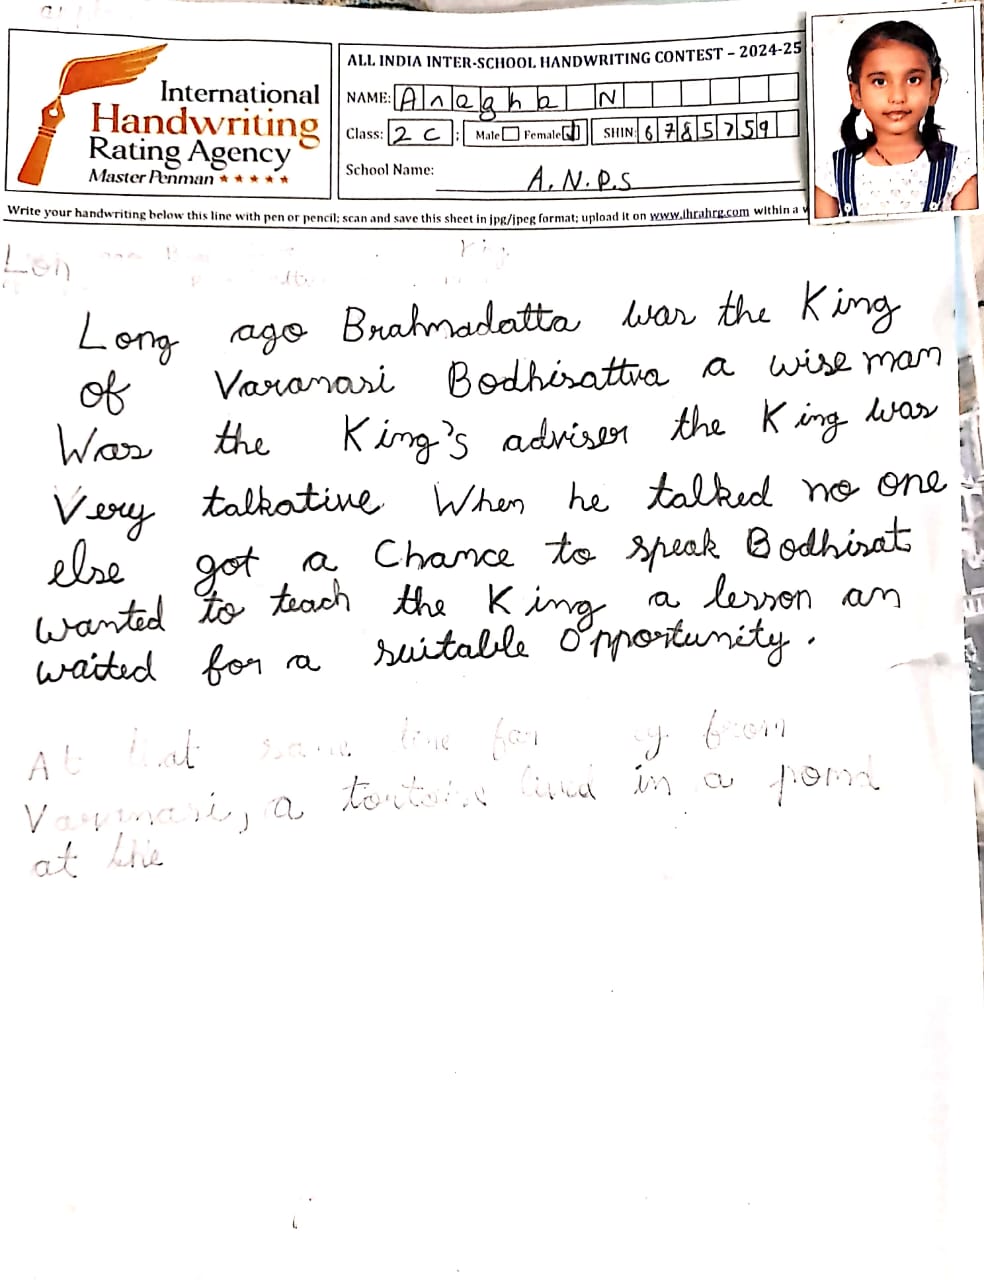 International
Handwriting
Rating Agency
Master Penman ★★★★★
ALL INDIA INTER-SCHOOL HANDWRITING CONTEST – 2024-25
NAME: Anagha N
Class: 2 C : Male Female SHIN: 6785759
School Name: A.N.P.S
Write your handwriting below this line with pen or pencil; scan and save this sheet in jpg/jpeg format; upload it on www.ihrahrg.com within a
Lon
Long ago Brahmadatta was the King
of Varanasi Bodhisattva a wise man
Was the King's adviser the King was
Very talkative. When he talked no one
else got a Chance to speak Bodhisat
wanted to teach the King a lesson an
waited for a suitable Opportunity.
At that same time far from
Varanasi, a tortoise lived in a pond
at the